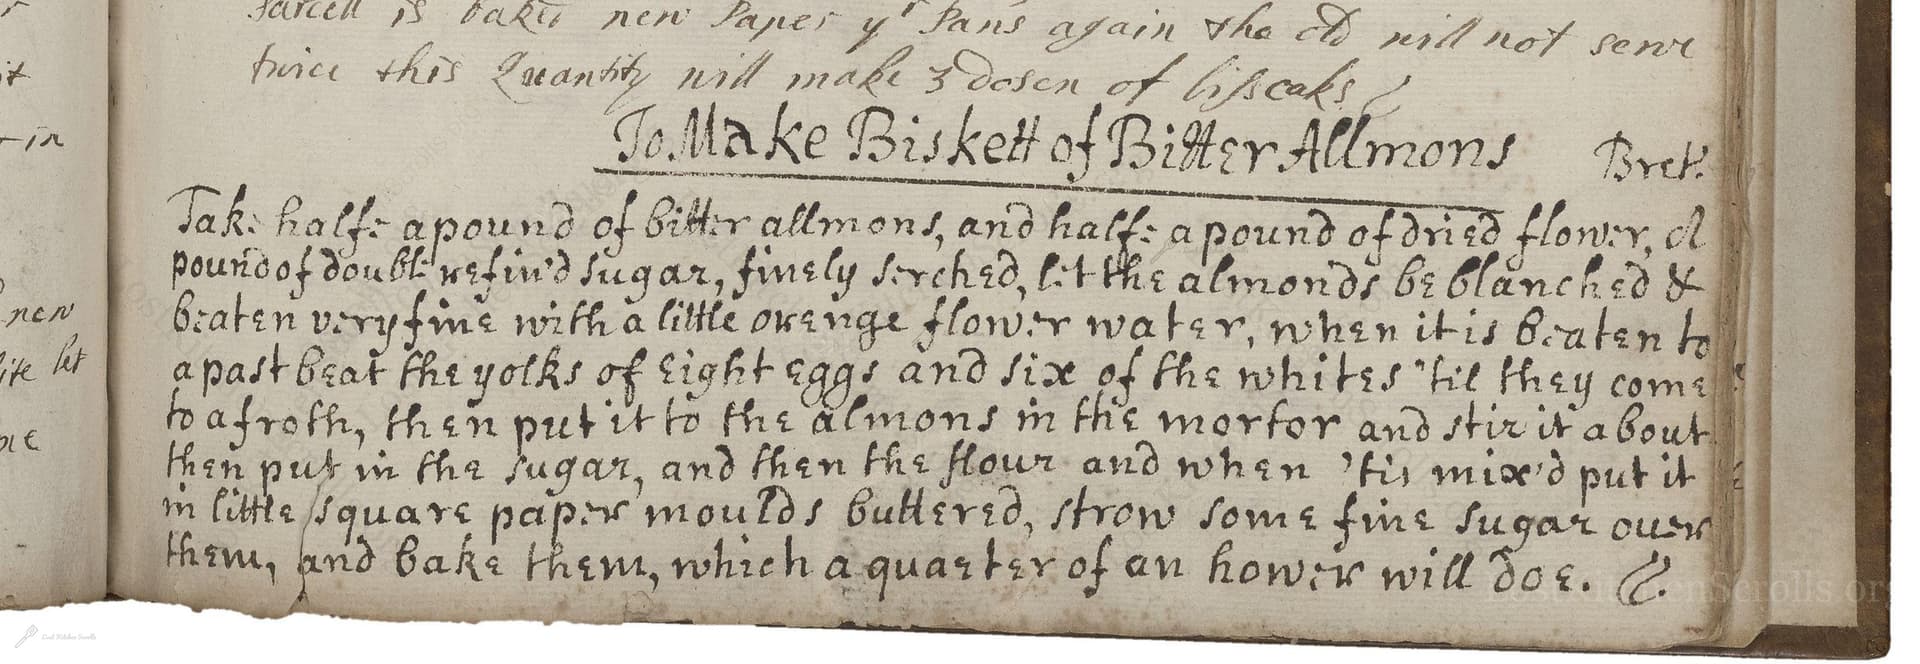 it
in
new
let
Parcell is baked new Paper yr Pans again the old will not serve
twice this Quantity will make 3 dosen of bisscaks
To Make Biskett of Bitter Allmons Bret:
Take halfe a pound of bitter allmons, and halfe a pound of dried flower, A
pound of double refin'd sugar, finely serched, let the almonds be blanched &
beaten very fine with a little orenge flower water, when it is beaten to
a past beat the yolks of eight eggs and six of the whites 'til they come
to a froth, then put it to the almons in the mortor and stir it about
then put in the sugar, and then the flour and when 'tis mix'd put it
in little square paper moulds buttered, strow some fine sugar over
them, and bake them, which a quarter of an hower will doe.
Lost Kitchen Scrolls